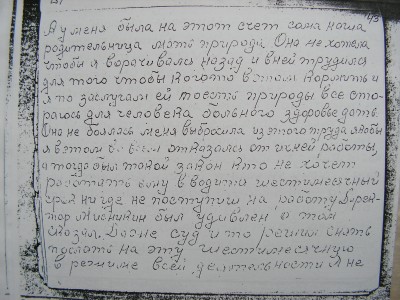 А у меня была на этот счет сама наша
родительница мать природа. Она не хотела
чтобы я ворачивался назад и в ней трудился
для того чтобы кого то в этом кормить и
я по заслугам ей тоесть природы все ста-
раюсь для человека больного здоровье дать.
Она не боялась меня выбросила из этого труда, а я бы
в этом отказалась от ихней работы,
а тогда был такой закон кто не хочет
работать ему вводити шестимесячный
срок нигде не поступиш на работу Дирек-
тор был удивлен и там
сказал. Даже суд и то решил снять
послать на эту шестимесячную
в режиме всей деятельности Я не